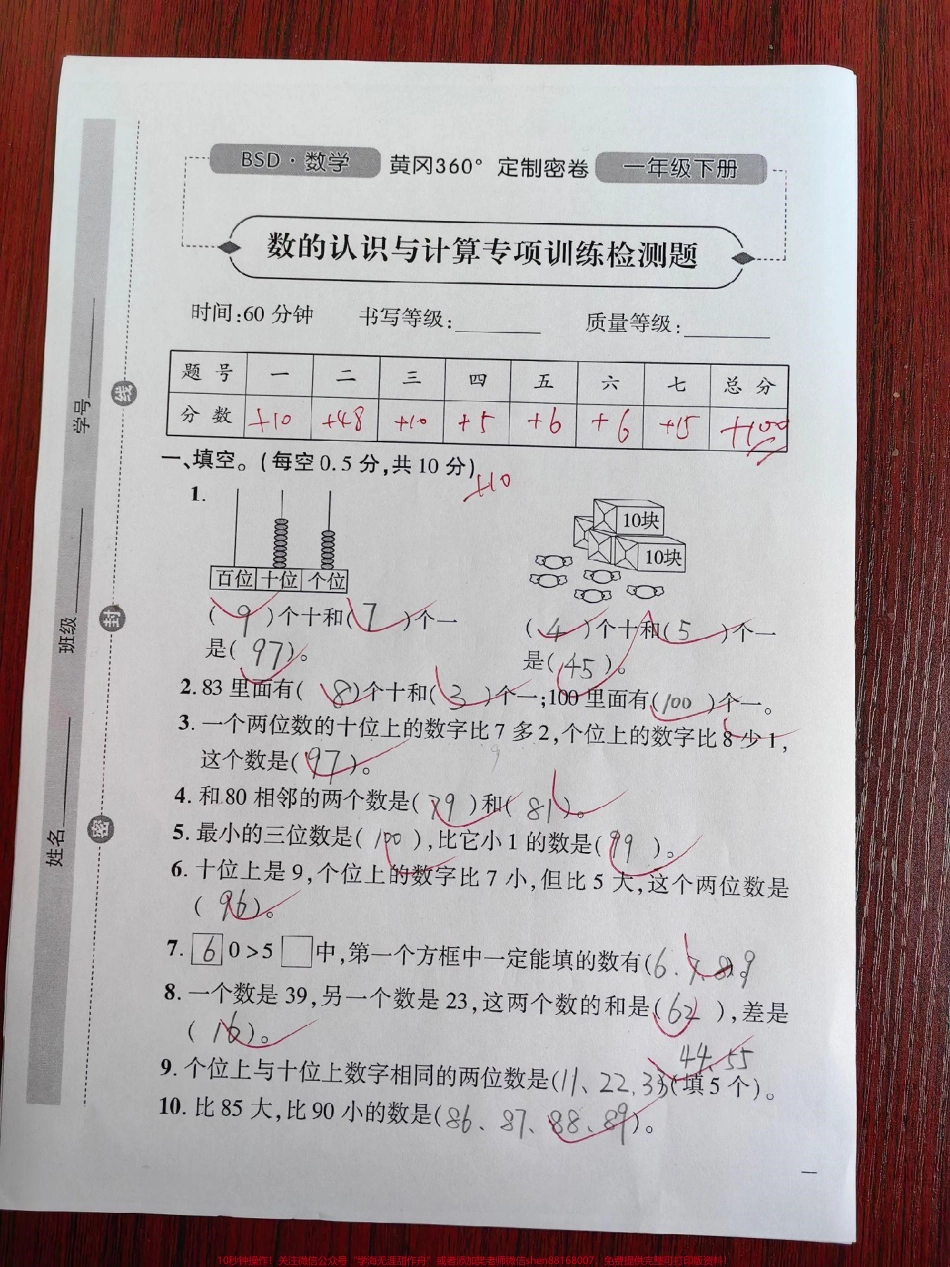 BSD·数学 黄冈360° 定制密卷 一年级下册
数的认识与计算专项训练检测题
时间:60分钟 书写等级:________ 质量等级:________
题号 一 二 三 四 五 六 七 总分
分数 +10 +48 +10 +5 +6 +6 +15 +100
一、填空。(每空0.5分,共10分) +10
1.
10块
10块
百位 十位 个位
(9)个十和(7)个一
是(97)。
(4)个十和(5)个一
是(45)。
2.83里面有(8)个十和(3)个一;100里面有(100)个一。
3.一个两位数的十位上的数字比7多2,个位上的数字比8少1,
9
这个数是(97)。
4.和80相邻的两个数是(79)和(81)。
5.最小的三位数是(100),比它小1的数是(99)。
6.十位上是9,个位上的数字比7小,但比5大,这个两位数是
(96)。
7.[6]0>5□中,第一个方框中一定能填的数有(6、7、8、9
8.一个数是39,另一个数是23,这两个数的和是(62),差是
(16)。
44、55
9.个位上与十位上数字相同的两位数是(11、22、33)(填5个)。
10.比85大,比90小的数是(86、87、88、89)。
一
学号
班级
姓名
线
封
密
10秒钟操作!关注微信公众号“学海无涯甜作舟”或者添加吴老师微信shen88168007,免费提供完整可打印版资料!